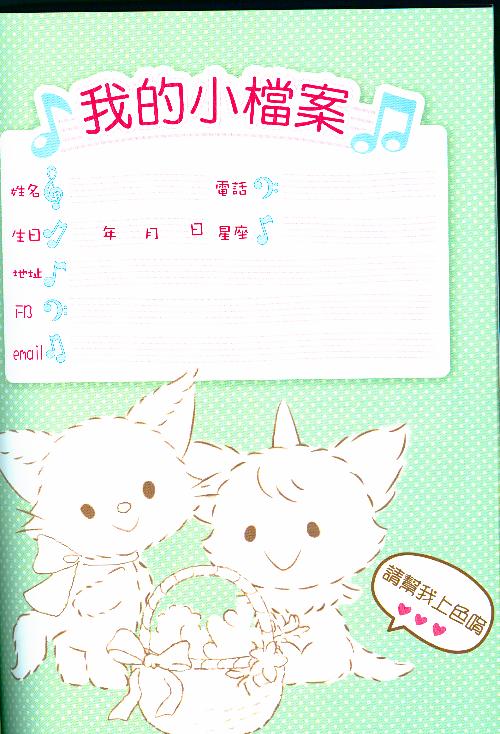 我的小檔案
姓名 電話
生日 年 月 日 星座
地址
FB
email
請幫我上色唷